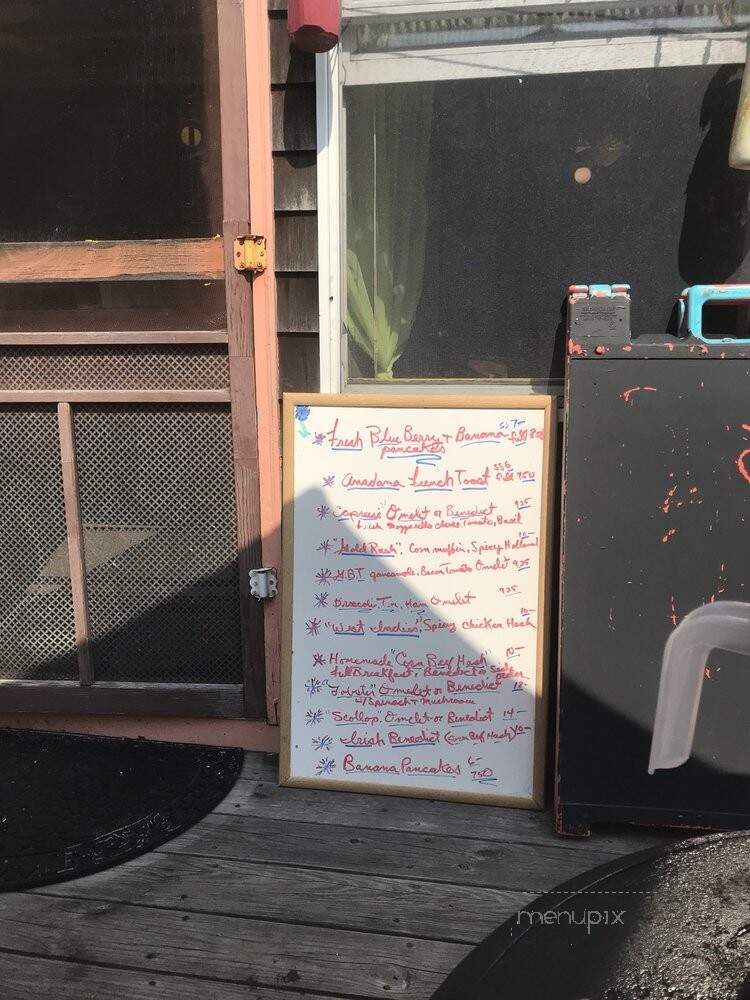 Fresh Blue Berry + Banana ss 7-
pancakes full 8
Anadama French Toast ss 6 full 750
"Caprese" Omelet or Benedict 925
fresh mozzarella cheese Tomato, Basil
"Gold Rush", Corn muffin, Spicy Holland 10-
G.B.T guacamole, Bacon Tomato Omelet 925
Broccoli, Tom, Ham Omelet 925
"West Indies", Spicy Chicken Hash 10-
Homemade "Corn Beef Hash" 10-
full Breakfast, Benedict or
"Lobster" Omelet or Benedict 12-
w/ Spinach + Mushroom
"Scollop" Omelet or Benedict 14-
Irish Benedict (Corn Beef Hash) 10-
Banana Pancakes 6-
750
menupix